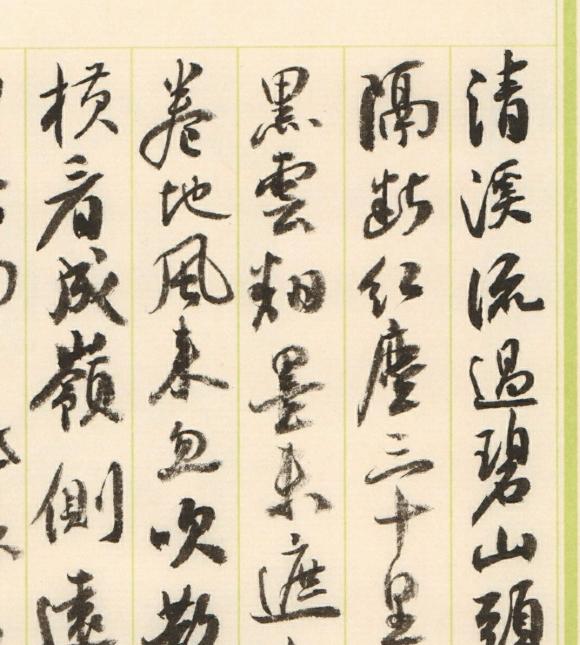 清溪流過碧山頭
隔斷紅塵三十里
黑雲翻墨未遮
卷地風来忽吹散
横看成嶺側遠